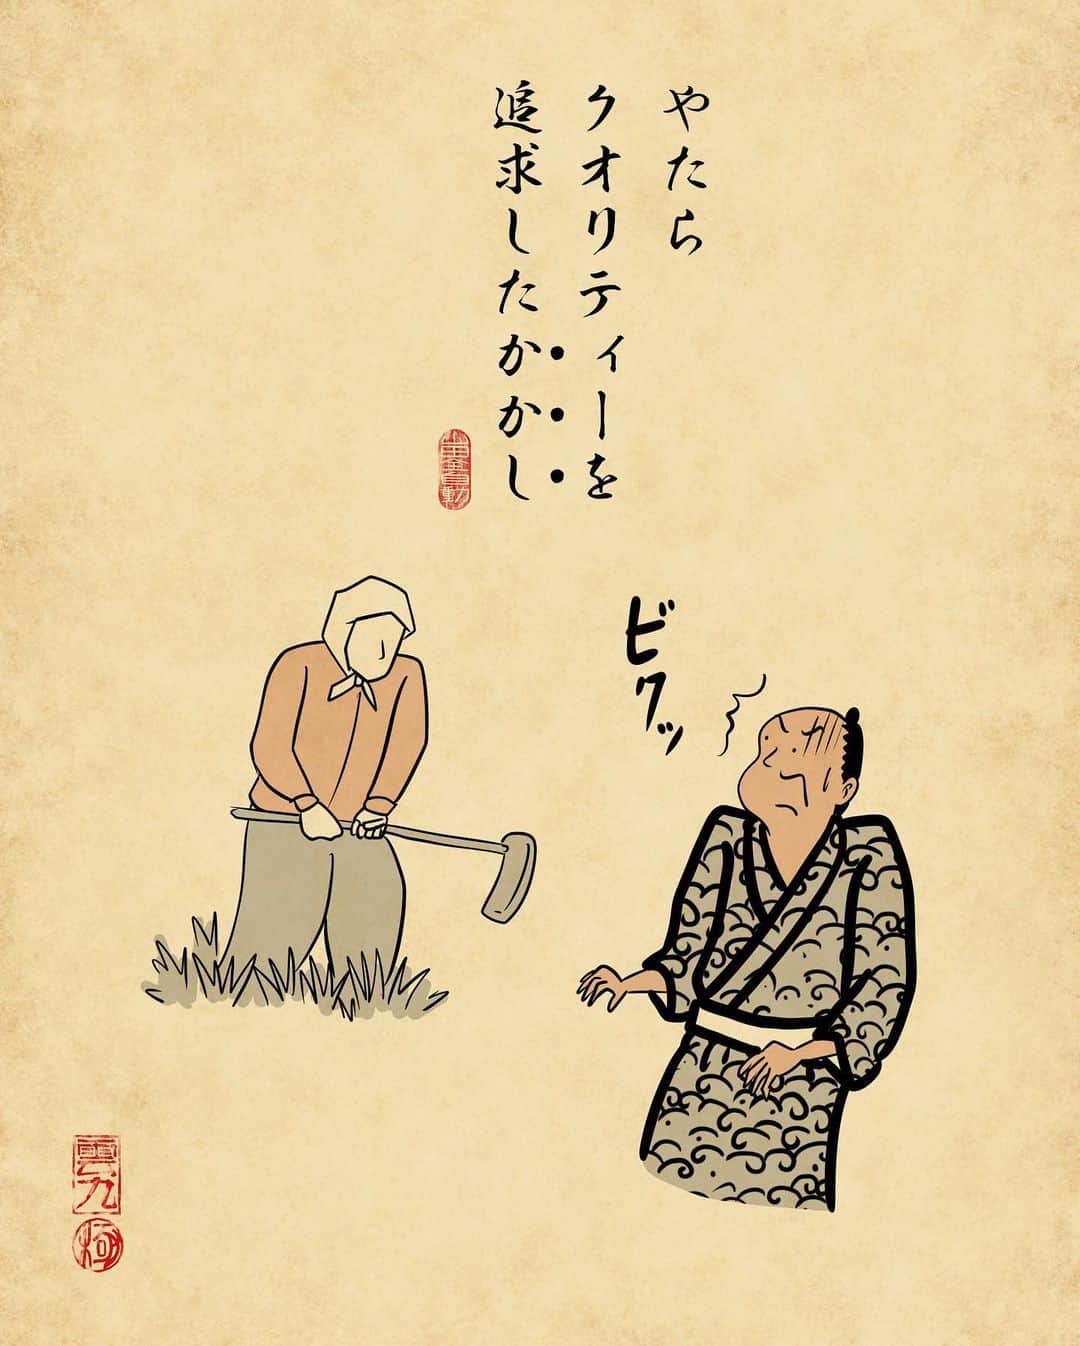 やたら
クオリティーを
追求したかかし
ビクッ